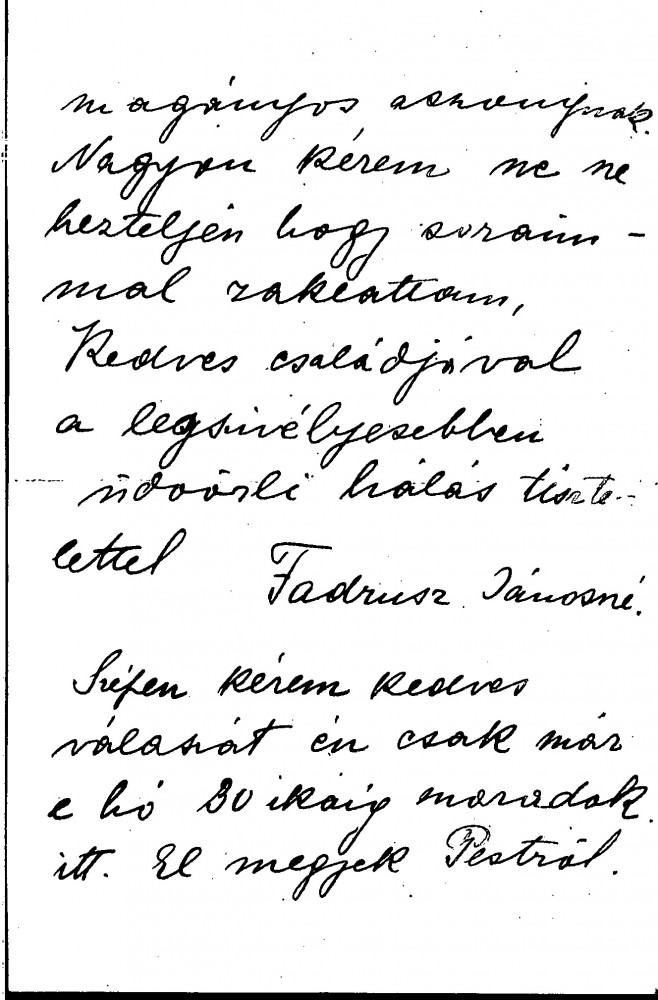 magányos asszonynak.
Nagyon kérem ne ne
hezteljen hogy soraim-
mal zaklattam,
Kedves családjával
a legszivélyesebben
üdvözli hálás tiszte-
lettel Fadrusz Jánosné.
Szépen kérem kedves
válaszát én csak már
e hó 30 ikáig maradok
itt. El megyek Pestről.